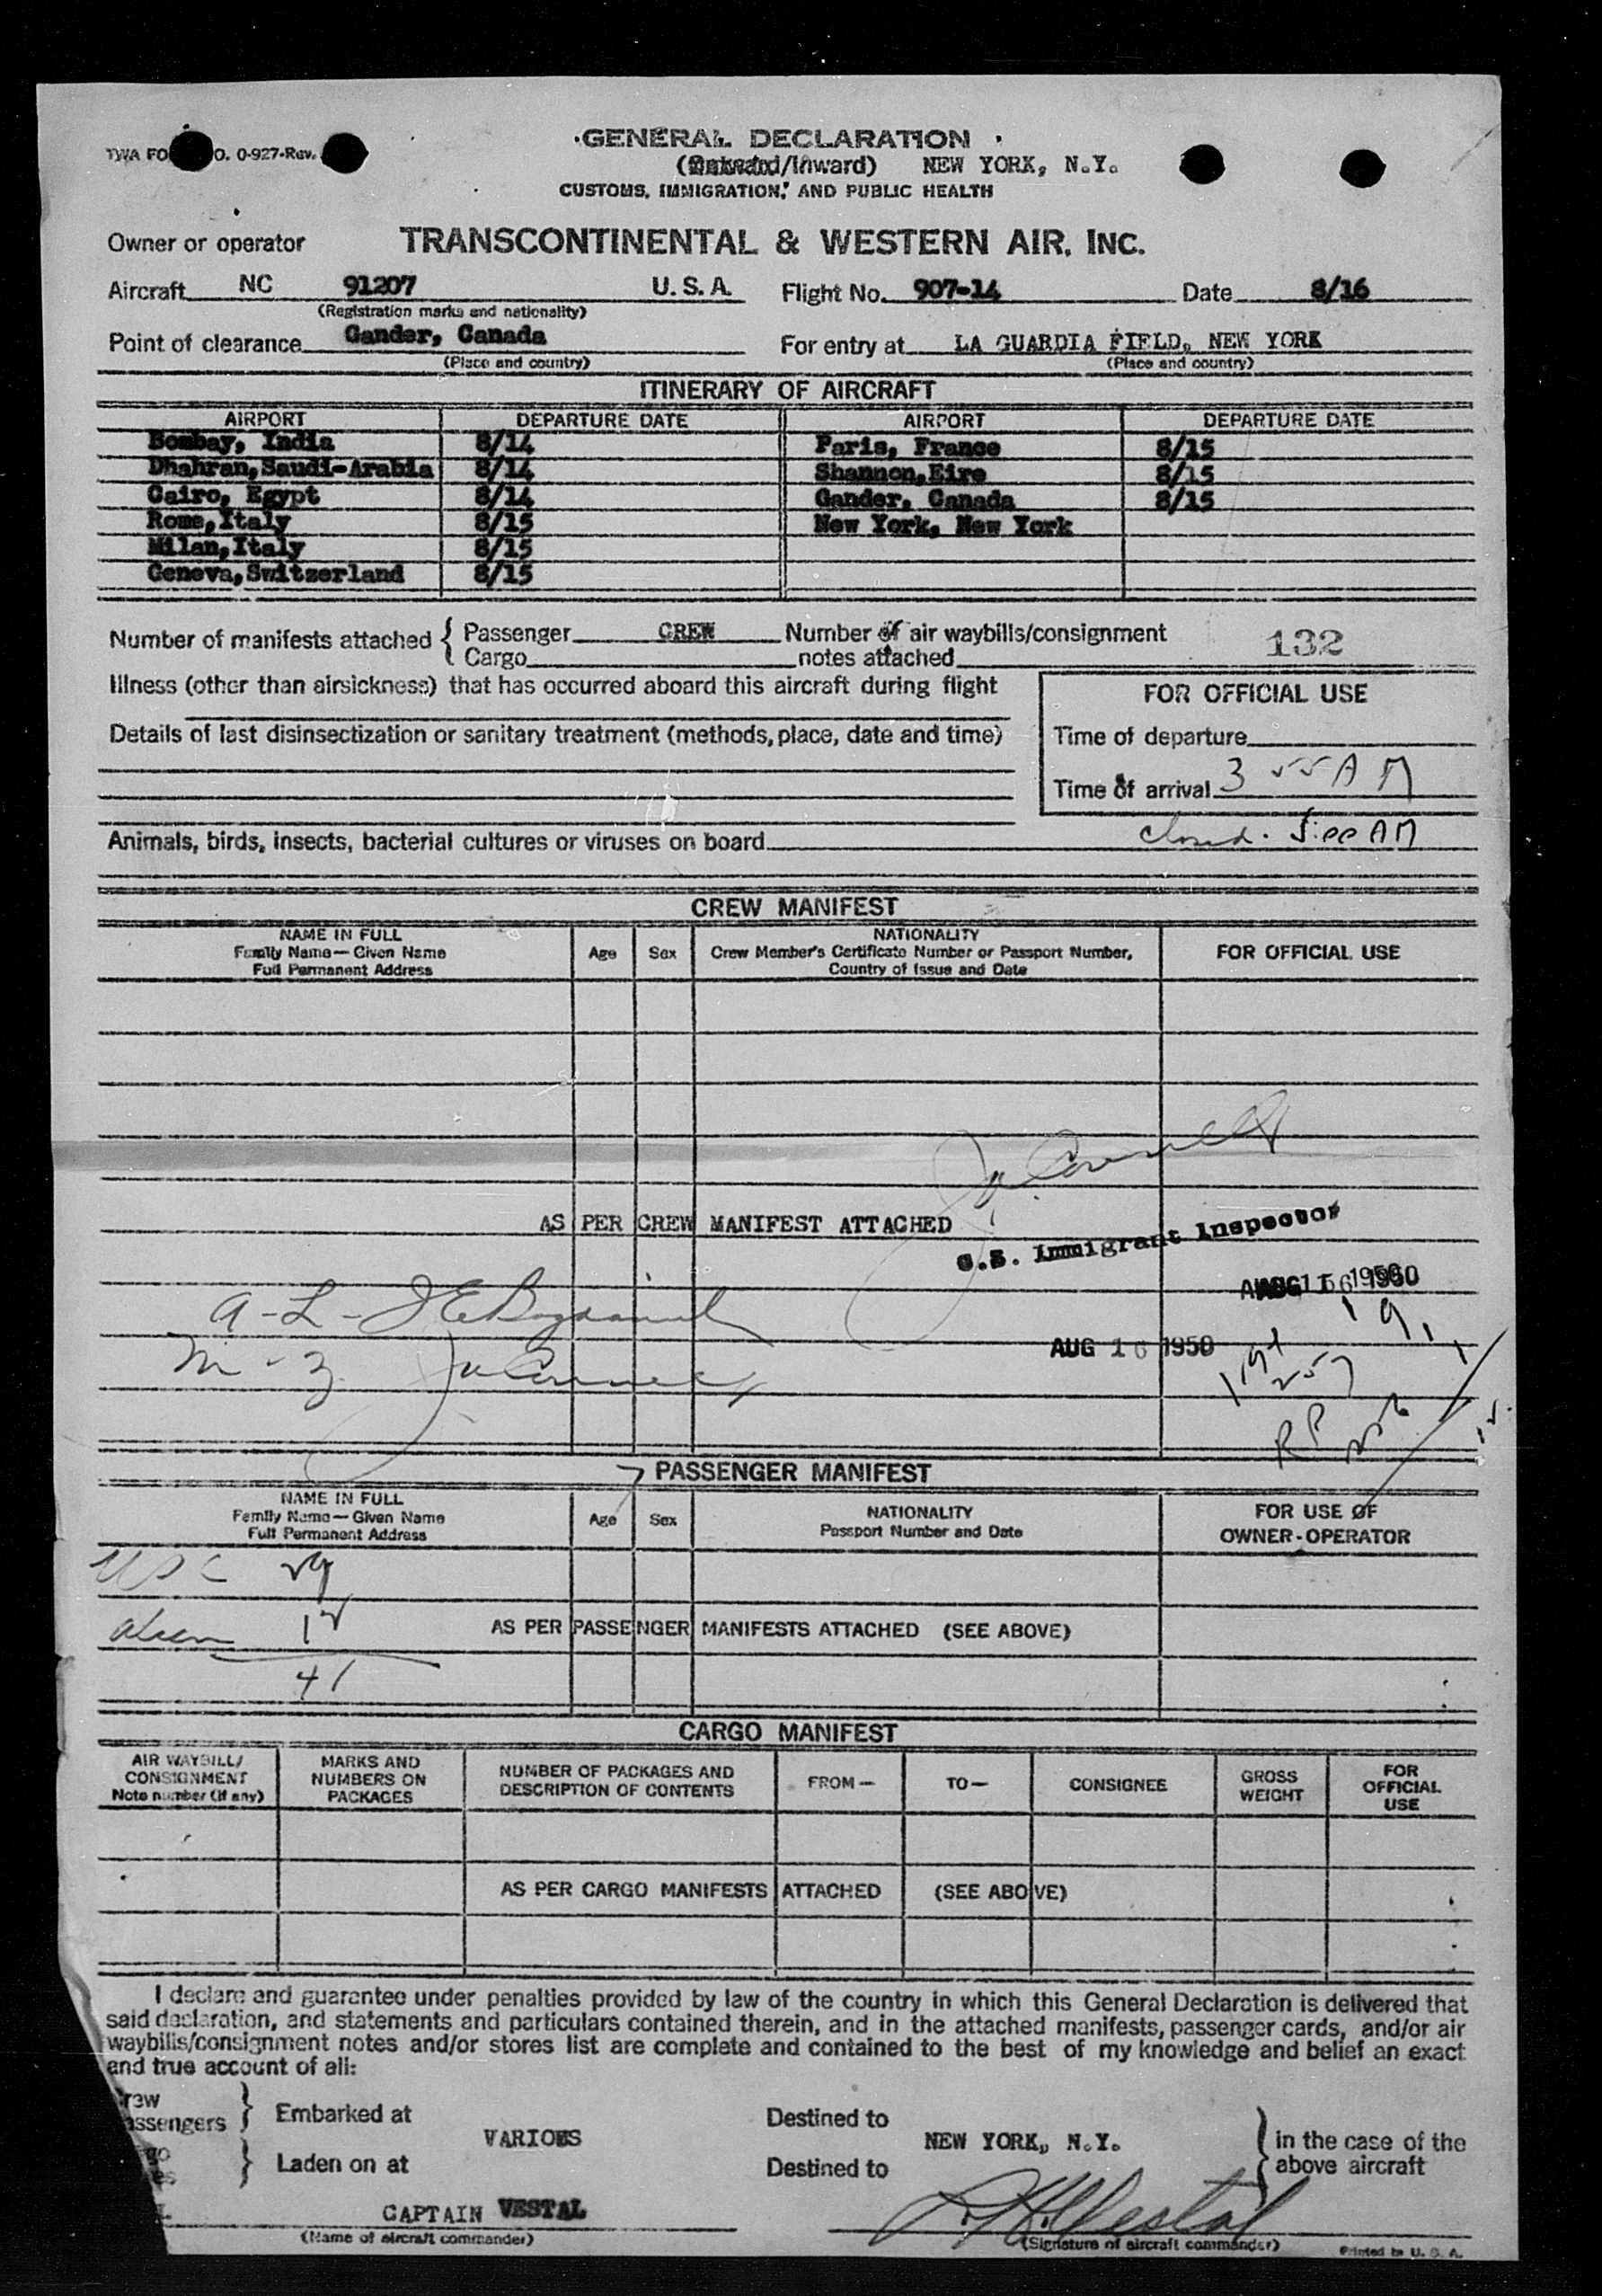 TWA FO O. O-927-Rev.
GENERAL DECLARATION
(Outward/Inward) NEW YORK, N.Y.
CUSTOMS, IMMIGRATION, AND PUBLIC HEALTH
Owner or operator TRANSCONTINENTAL & WESTERN AIR, INC.
Aircraft NC 91207 U.S.A. Flight No. 907-14 Date 8/16
(Registration marks and nationality)
Point of clearance Gander, Canada For entry at LA GUARDIA FIELD, NEW YORK
(Place and country) (Place and country)
ITINERARY OF AIRCRAFT
AIRPORT DEPARTURE DATE AIRPORT DEPARTURE DATE
Bombay, India 8/14 Paris, France 8/15
Dhahran, Saudi-Arabia 8/14 Shannon, Eire 8/15
Cairo, Egypt 8/14 Gander, Canada 8/15
Rome, Italy 8/15 New York, New York
Milan, Italy 8/15
Geneva, Switzerland 8/15
Number of manifests attached { Passenger CREW Number of air waybills/consignment 132
Cargo notes attached
Illness (other than airsickness) that has occurred aboard this aircraft during flight
FOR OFFICIAL USE
Details of last disinsectization or sanitary treatment (methods, place, date and time)
Time of departure
Time of arrival 3 55 AM
Animals, birds, insects, bacterial cultures or viruses on board closed. 5:00 AM
CREW MANIFEST
NAME IN FULL
Family Name—Given Name
Full Permanent Address
Age Sex
NATIONALITY
Crew Member's Certificate Number or Passport Number,
Country of Issue and Date
FOR OFFICIAL USE
AS PER CREW MANIFEST ATTACHED
U.S. Immigrant Inspector
A-L-
AUG 16 1950
M-Z
PASSENGER MANIFEST
NAME IN FULL
Family Name—Given Name
Full Permanent Address
Age Sex
NATIONALITY
Passport Number and Date
FOR USE OF
OWNER-OPERATOR
USC 29
alien 12 AS PER PASSENGER MANIFESTS ATTACHED (SEE ABOVE)
41
CARGO MANIFEST
AIR WAYBILL/
CONSIGNMENT
Note number (if any)
MARKS AND
NUMBERS ON
PACKAGES
NUMBER OF PACKAGES AND
DESCRIPTION OF CONTENTS
FROM— TO— CONSIGNEE
GROSS
WEIGHT
FOR
OFFICIAL
USE
AS PER CARGO MANIFESTS ATTACHED (SEE ABOVE)
I declare and guarantee under penalties provided by law of the country in which this General Declaration is delivered that
said declaration, and statements and particulars contained therein, and in the attached manifests, passenger cards, and/or air
waybills/consignment notes and/or stores list are complete and contained to the best of my knowledge and belief an exact
and true account of all:
rew
assengers } Embarked at Destined to
VARIOUS NEW YORK, N.Y. in the case of the
above aircraft
Laden on at Destined to
CAPTAIN VESTAL
(Name of aircraft commander) (Signature of aircraft commander)
Printed in U. S. A.